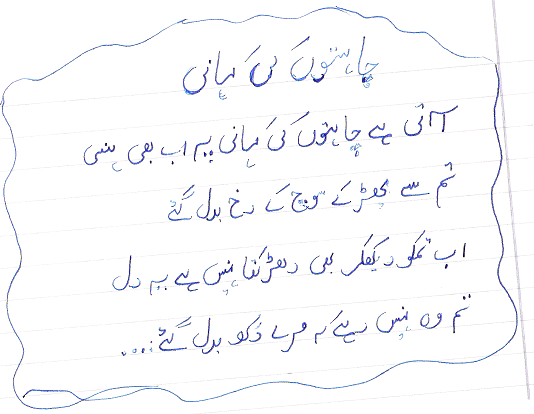 چاہتوں کی کہانی
آتی ہے چاہتوں کی کہانی پہ اب بھی ہنسی
تم سے بچھڑ کے سوچ کے رخ بدل گئے
اب تمکو دیکھکر بھی دھڑکتا نہیں ہے یہ دل
تم وہ نہیں رہے کہ میرے دکھ بدل گئے....